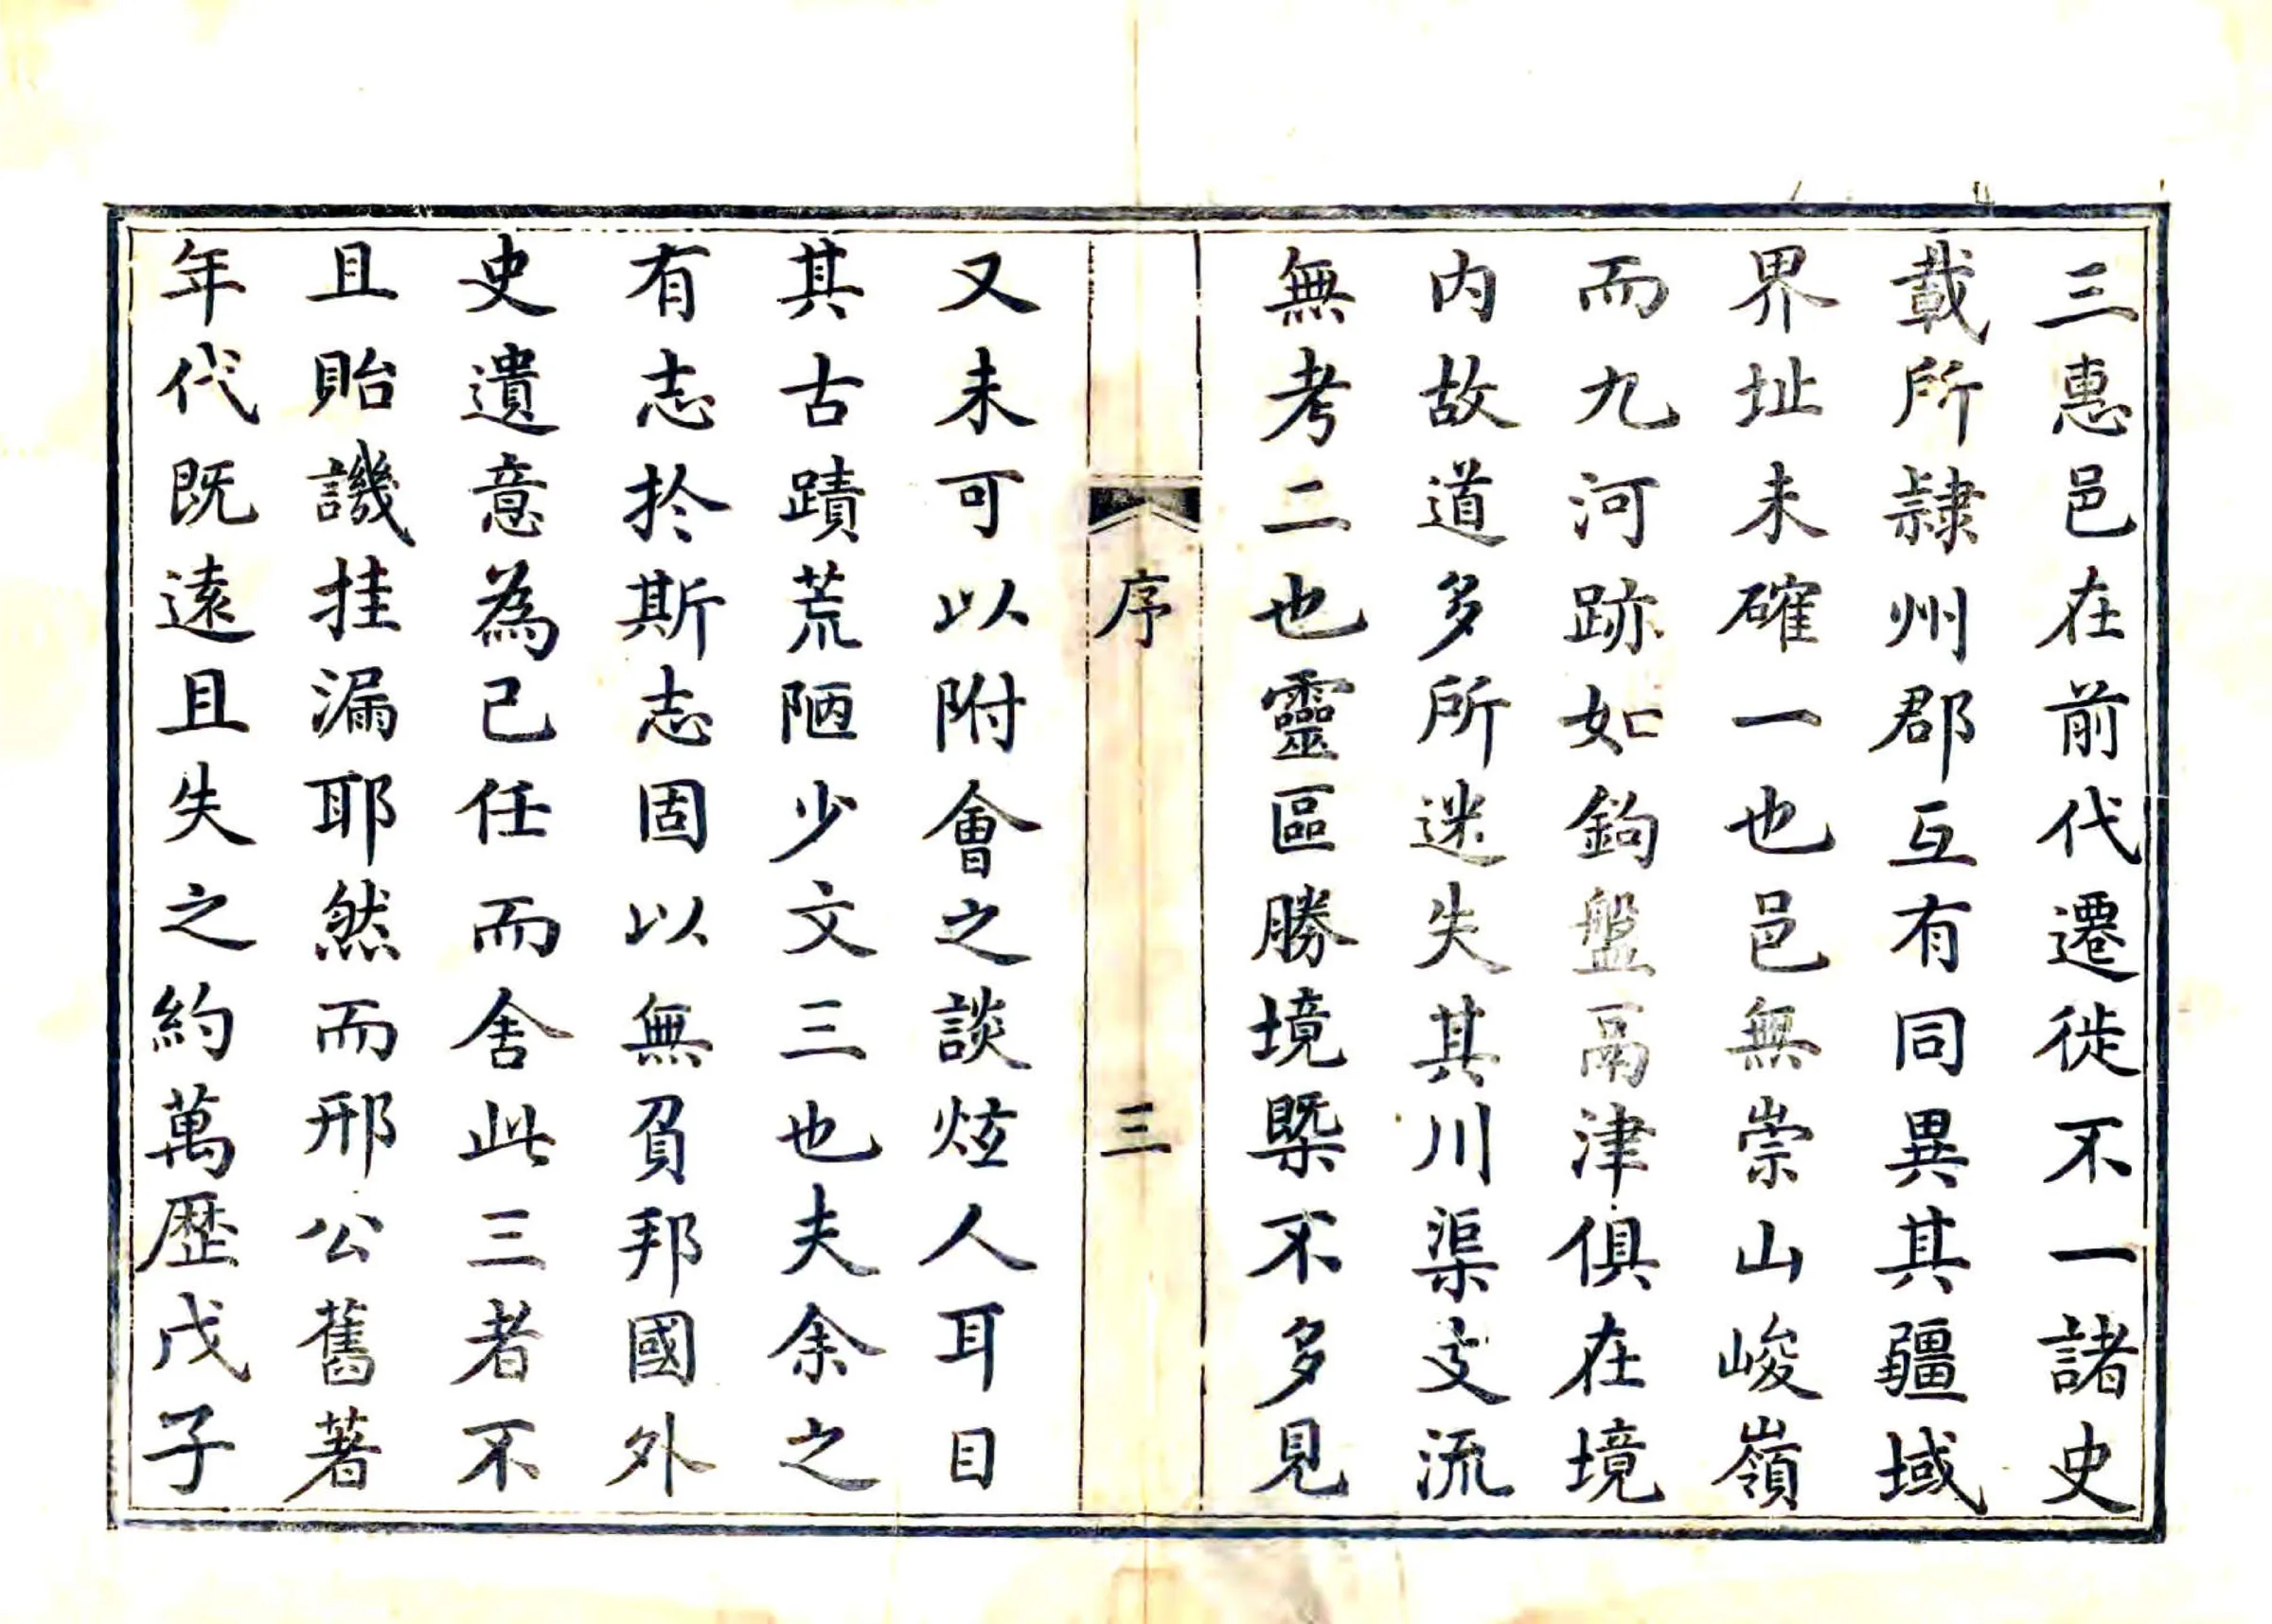 三惠邑在前代遷徙不一諸史
載所隷州郡互有同異其疆域
界址未確一也邑無崇山峻嶺
而九河跡如鉤盤鬲津俱在境
内故道多所迷失其川渠支流
無考二也靈區勝境槩不多見
序
三
又未可以附會之談炫人耳目
其古蹟荒陋少文三也夫余之
有志於斯志固以無負邦國外
史遺意為己任而舍此三者不
且貽譏挂漏耶然而邢公舊著
年代既遠且失之約萬歴戊子